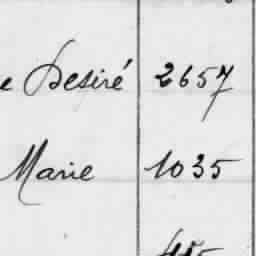 e Desiré 2657
Marie 1035